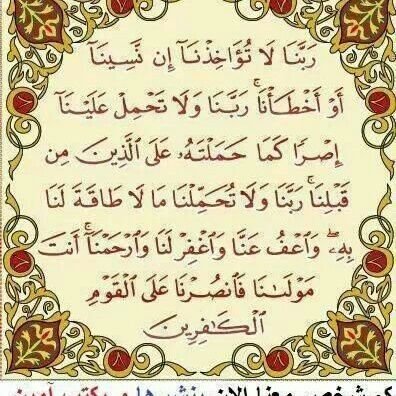 رَبَّنَا لَا تُؤَاخِذْنَآ إِن نَّسِينَآ
أَوْ أَخْطَأْنَا ۚ رَبَّنَا وَلَا تَحْمِلْ عَلَيْنَآ
إِصْرًا كَمَا حَمَلْتَهُۥ عَلَى ٱلَّذِينَ مِن
قَبْلِنَا ۚ رَبَّنَا وَلَا تُحَمِّلْنَا مَا لَا طَاقَةَ لَنَا
بِهِۦ ۖ وَٱعْفُ عَنَّا وَٱغْفِرْ لَنَا وَٱرْحَمْنَآ ۚ أَنتَ
مَوْلَىٰنَا فَٱنصُرْنَا عَلَى ٱلْقَوْمِ
ٱلْكَـٰفِرِينَ
كم شخص معنا الان ينشرها ويكتب آمين